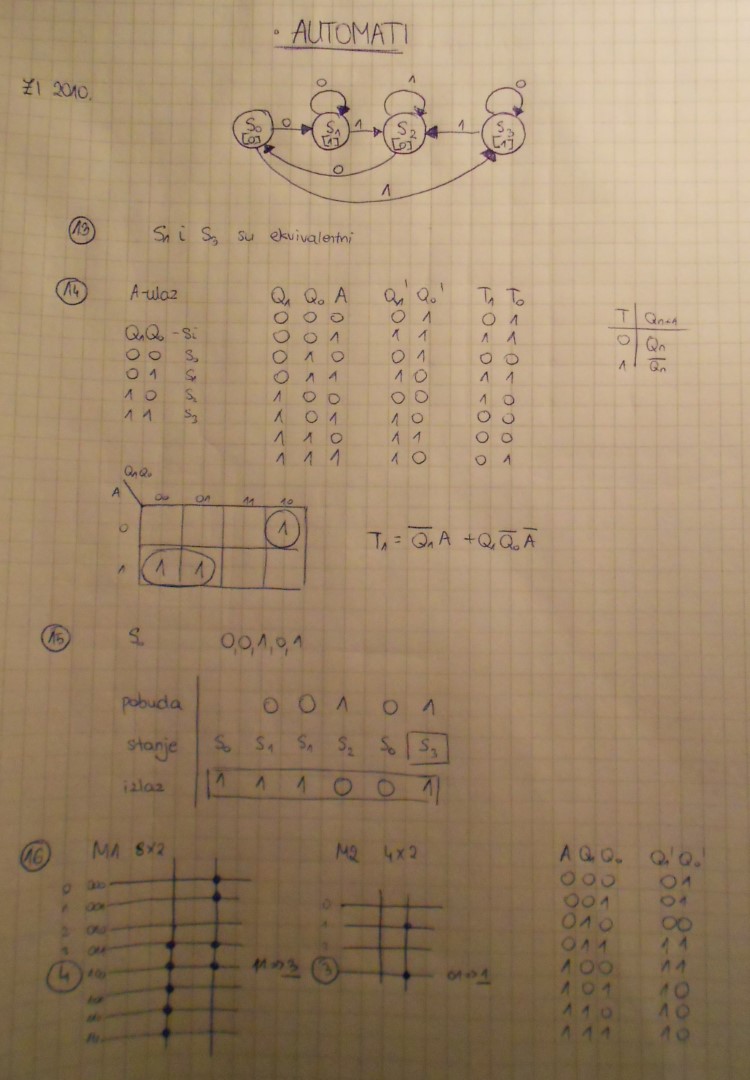 • AUTOMATI
ZI 2010.
0 1 0
S₀ [0] 0 S₁ [1] 1 S₂ [0] 1 S₃ [1]
0
1
13 S₁ i S₃ su ekvivalentni
14 A-ulaz Q₁ Q₀ A Q₁' Q₀' T₁ T₀
0 0 0 0 1 0 1
Q₁Q₀ - Si 0 0 1 1 1 1 1
0 0 S₀ 0 1 0 0 1 0 0
0 1 S₁ 0 1 1 1 0 1 1
1 0 S₂ 1 0 0 0 0 1 0
1 1 S₃ 1 0 1 1 0 0 0
1 1 0 1 1 0 0
1 1 1 1 0 0 1
T Qn+1
0 Qn
1 Q̅n
Q₁Q₀
A 00 01 11 10
0 1
1 1 1
T₁ = Q̅₁ A + Q₁ Q̅₀ A̅
15 S₀ 0,0,1,0,1
pobuda 0 0 1 0 1
stanje S₀ S₁ S₁ S₂ S₀ S₃
izlaz 1 1 1 0 0 1
16 M1 8x2 M2 4x2
0 000
1 001
2 010
3 011
4 100 11=>3
101
110
111
0
1
2
3 01=>1
A Q₁ Q₀ Q₁' Q₀'
0 0 0 0 1
0 0 1 0 1
0 1 0 0 0
0 1 1 1 1
1 0 0 1 1
1 0 1 1 0
1 1 0 1 0
1 1 1 1 0